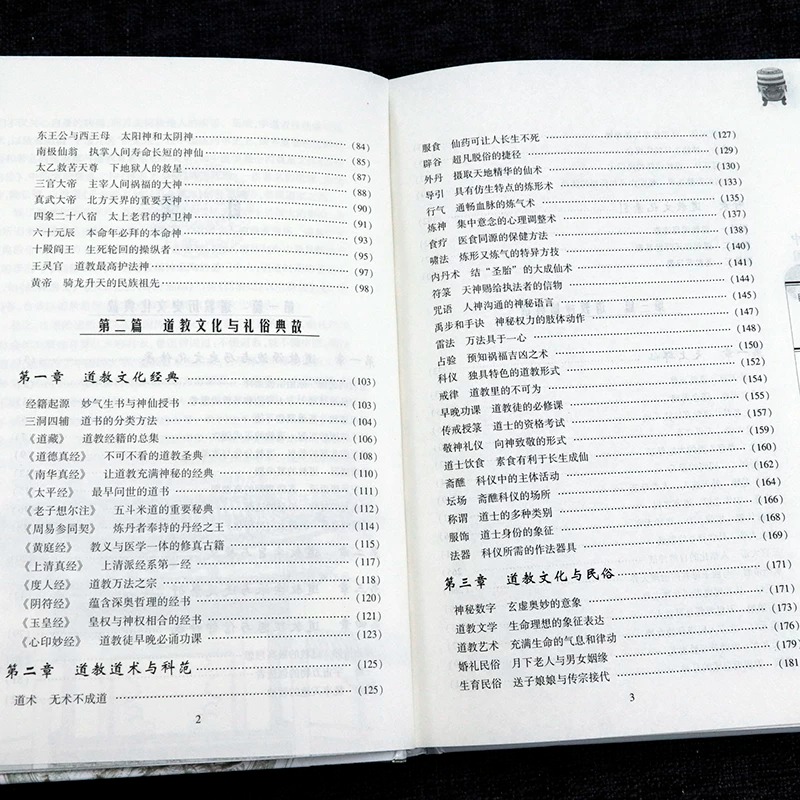 东王公与西王母 太阳神和太阴神 (84)
南极仙翁 执掌人间寿命长短的神仙 (85)
太乙救苦天尊 下地狱人的救星 (87)
三官大帝 主宰人间祸福的大神 (88)
真武大帝 北方天界的重要天神 (90)
四象二十八宿 太上老君的护卫神 (91)
六十元辰 本命年必拜的本命神 (93)
十殿阎王 生死轮回的操纵者 (95)
王灵官 道教最高护法神 (97)
黄帝 骑龙升天的民族祖先 (98)
第二篇 道教文化与礼俗典故
第一章 道教文化经典 (103)
经籍起源 妙气生书与神仙授书 (103)
三洞四辅 道书的分类方法 (104)
《道藏》 道教经籍的总集 (106)
《道德真经》 不可不看的道教圣典 (108)
《南华真经》 让道教充满神秘的经典 (110)
《太平经》 最早问世的道书 (111)
《老子想尔注》 五斗米道的重要秘典 (112)
《周易参同契》 炼丹者奉持的丹经之王 (114)
《黄庭经》 教义与医学一体的修真古籍 (115)
《上清真经》 上清派经系第一经 (117)
《度人经》 道教万法之宗 (118)
《阴符经》 蕴含深奥哲理的经书 (120)
《玉皇经》 皇权与神权相合的经书 (121)
《心印妙经》 道教徒早晚必诵功课 (123)
第二章 道教道术与科范 (125)
道术 无术不成道 (125)
2
服食 仙药可让人长生不死 (127)
辟谷 超凡脱俗的捷径 (129)
外丹 摄取天地精华的仙术 (130)
导引 具有仿生特点的炼形术 (133)
行气 通畅血脉的炼气术 (135)
炼神 集中意念的心理调整术 (137)
食疗 医食同源的保健方法 (138)
啸法 炼形又炼气的特异方技 (140)
内丹术 结“圣胎”的大成仙术 (141)
符箓 天神赐给执法者的信物 (144)
咒语 人神沟通的神秘语言 (145)
禹步和手诀 神秘权力的肢体动作 (147)
雷法 万法具于一心 (148)
占验 预知祸福吉凶之术 (150)
科仪 独具特色的道教形式 (152)
戒律 道教里的不可为 (154)
早晚功课 道教徒的必修课 (155)
传戒授箓 道士的资格考试 (157)
敬神礼仪 向神致敬的形式 (159)
道士饮食 素食有利于长生成仙 (160)
斋醮 科仪中的主体活动 (162)
坛场 斋醮科仪的场所 (164)
称谓 道士的多种类别 (166)
服饰 道士身份的象征 (168)
法器 科仪所需的作法器具 (169)
第三章 道教文化与民俗 (171)
神秘数字 玄虚奥妙的意象 (171)
道教文学 生命理想的象征表达 (173)
道教艺术 充满生命的气息和律动 (176)
婚礼民俗 月下老人与男女姻缘 (179)
生育民俗 送子娘娘与传宗接代 (181)
3